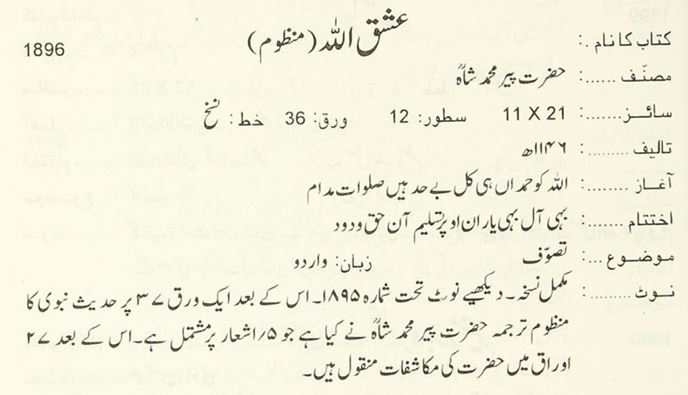 کتاب کا نام .: عشق اللہ (منظوم) 1896
مصنّف ......: حضرت پیر محمد شاہؒ
سائـــز......: 11 X 21 سطور: 12 ورق: 36 خط: نسخ
تالیف .........: ۱۱۴۶ھ
آغـاز ........: اللہ کو حمداں ہی کل بے حد ہیں صلوات مدام
اختتام ......: بہی آل بہی یاران اوپر تسلیم آن حق ودود
موضوع ...: تصوّف زبان: واردو
نــوٹ .........: مکمل نسخہ۔ دیکھیے نوٹ تحت شمارہ ۱۸۹۵۔ اس کے بعد ایک ورق ۳۷ پر حدیث نبوی کا
منظوم ترجمہ حضرت پیر محمد شاہؒ نے کیا ہے جو ۵/اشعار پر مشتمل ہے۔ اس کے بعد ۲۷
اوراق میں حضرت کی مکاشفات منقول ہیں۔